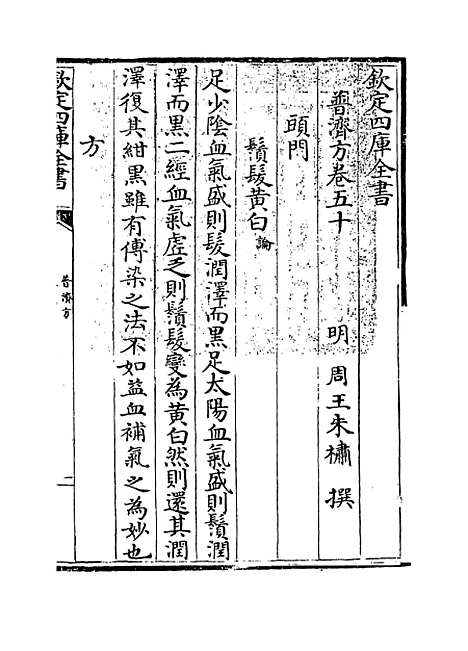 欽定四庫全書
普濟方卷五十
明 周王朱橚 撰
頭門
鬚髮黃白論
足少陰血氣盛則髮潤澤而黑足太陽血氣盛則鬚潤
澤而黑二經血氣虛乏則鬚髮變為黃白然則還其潤
澤復其紺黑雖有傅染之法不如益血補氣之為妙也
方
欽定四庫全書
普濟方
二